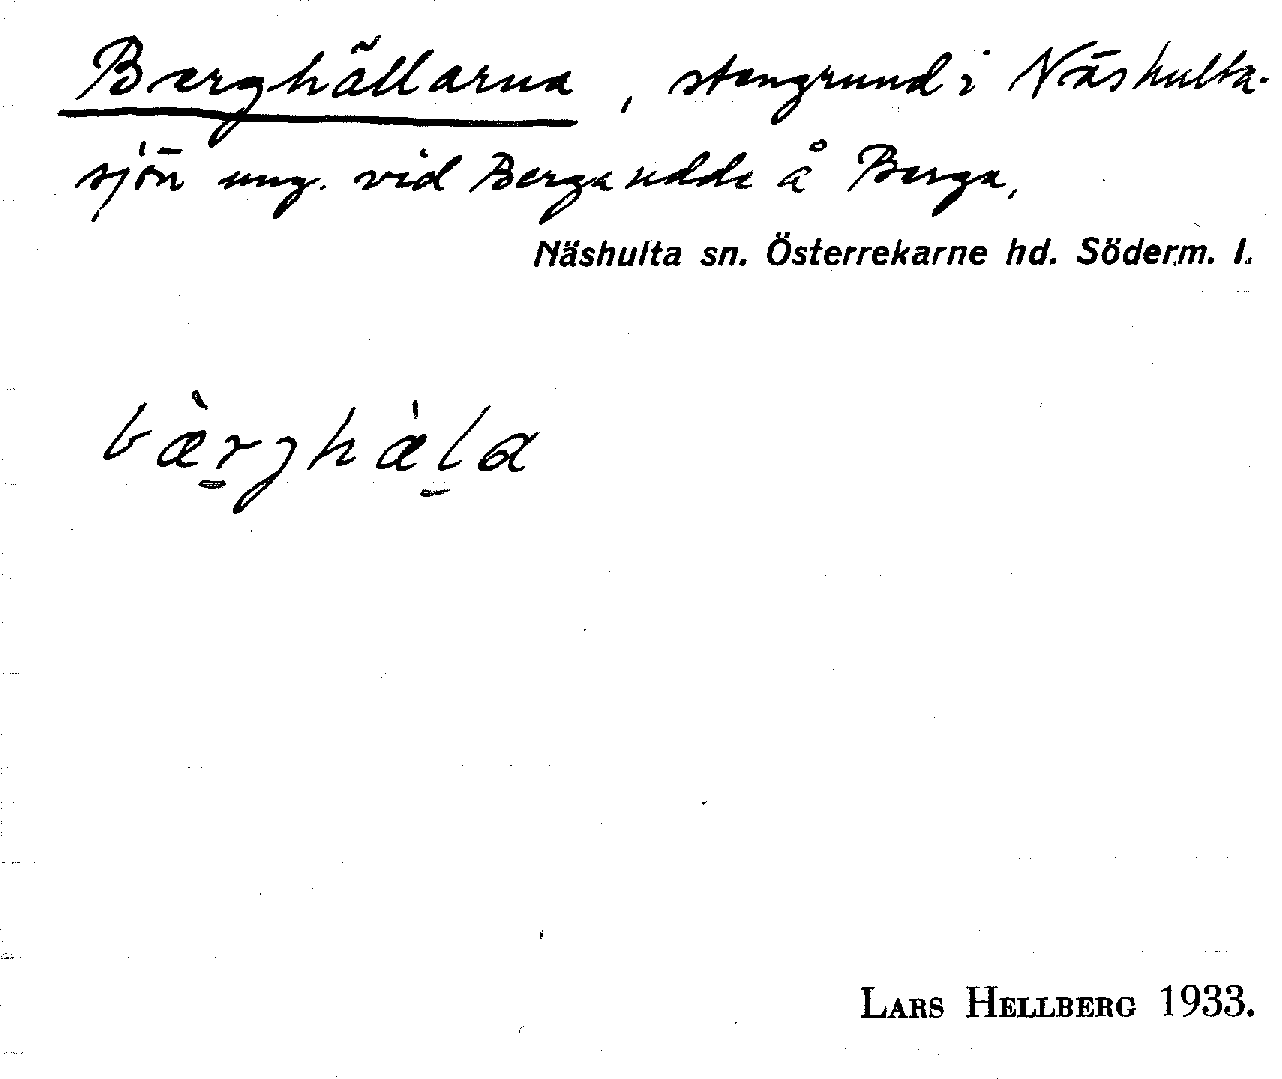 Berghällarna, stengrund i Näshulta-
sjön ung. vid Berga udde å Berga,
Näshulta sn. Österrekarne hd. Söderm. l.
bæ̀rghæ̀la
LARS HELLBERG 1933.